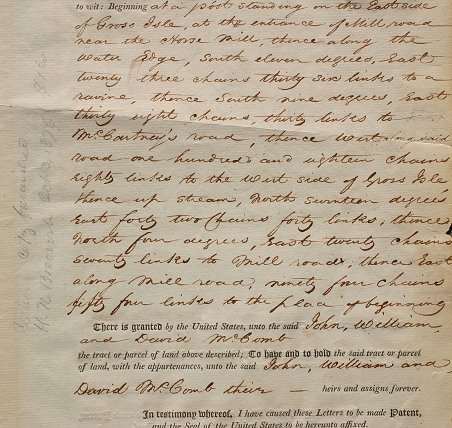 to wit: Beginning at a post standing on the East side
of Gross Isle, at the entrance of Mill road
near the Horse Mill, thence along the
water Edge, South eleven degrees, East
twenty three chains thirty six links to a
ravine, thence South nine degrees, East
thirty eight chains, thirty links to
McCartney's road, thence West along said
road one hundred and eighteen chains
eighty links to the West side of Gross Isle,
thence up stream, North seventeen degrees
East forty two Chains forty links, thence
North four degrees, East twenty chains
seventy links to Mill road, thence East
along Mill road, ninety four chains
fifty four links to the place of beginning
There is granted by the United States, unto the said John, William,
and David McComb
the tract or parcel of land above described; To have and to hold the said tract or parcel
of land, with the appurtenances, unto the said John, William and
David McComb their — heirs and assigns forever.
In testimony whereof, I have caused these Letters to be made Patent,
and the Seal of the United States to be hereunto affixed.